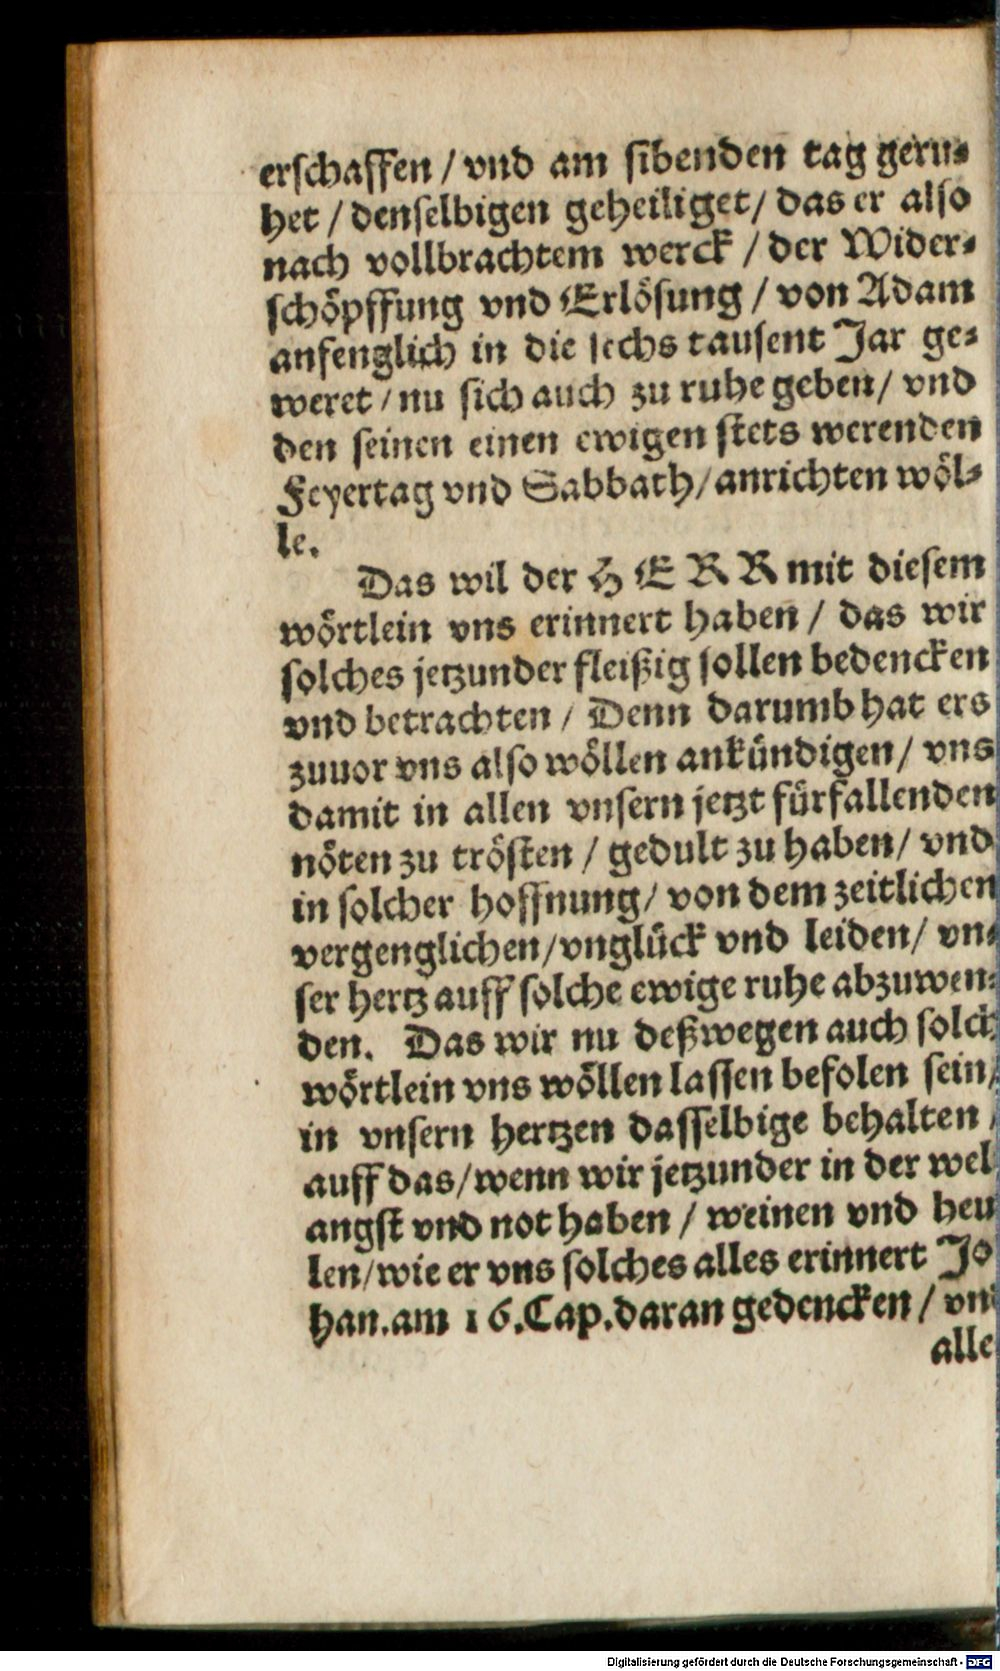 erschaffen / vnd am sibenden tag geru⸗
het / denselbigen geheiliget / das er also
nach vollbrachtem werck / der Wider⸗
schöpffung vnd Erlösung / von Adam
anfenglich in die sechs tausent Jar ge⸗
weret / nu sich auch zu ruhe geben / vnd
den seinen einen ewigen stets werenden
Feyertag vnd Sabbath / anrichten wöl⸗
le.
Das wil der HERR mit diesem
wörtlein vns erinnert haben / das wir
solches jetzunder fleißig sollen bedencken
vnd betrachten / Denn darumb hat ers
zuuor vns also wöllen ankündigen / vns
damit in allen vnsern jetzt fürfallenden
nöten zu trösten / gedult zu haben / vnd
in solcher hoffnung / von dem zeitlichen
vergenglichen / vnglück vnd leiden / vn⸗
ser hertz auff solche ewige ruhe abzuwen⸗
den. Das wir nu deßwegen auch solch
wörtlein vns wöllen lassen befolen sein /
in vnsern hertzen dasselbige behalten /
auff das / wenn wir jetzunder in der wel
angst vnd not haben / weinen vnd heu
len / wie er vns solches alles erinnert Jo
han. am 16. Cap. daran gedencken / vnd
alle
Digitalisierung gefördert durch die Deutsche Forschungsgemeinschaft - DFG